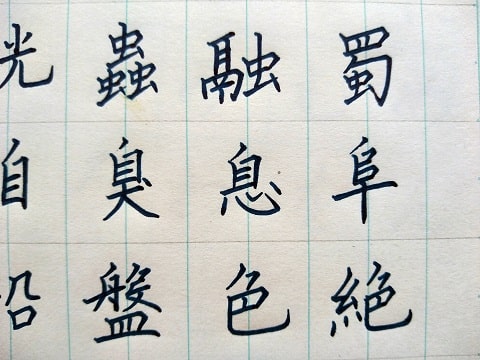 光 蟲 融 蜀
自 臭 息 阜
盤 色 絶